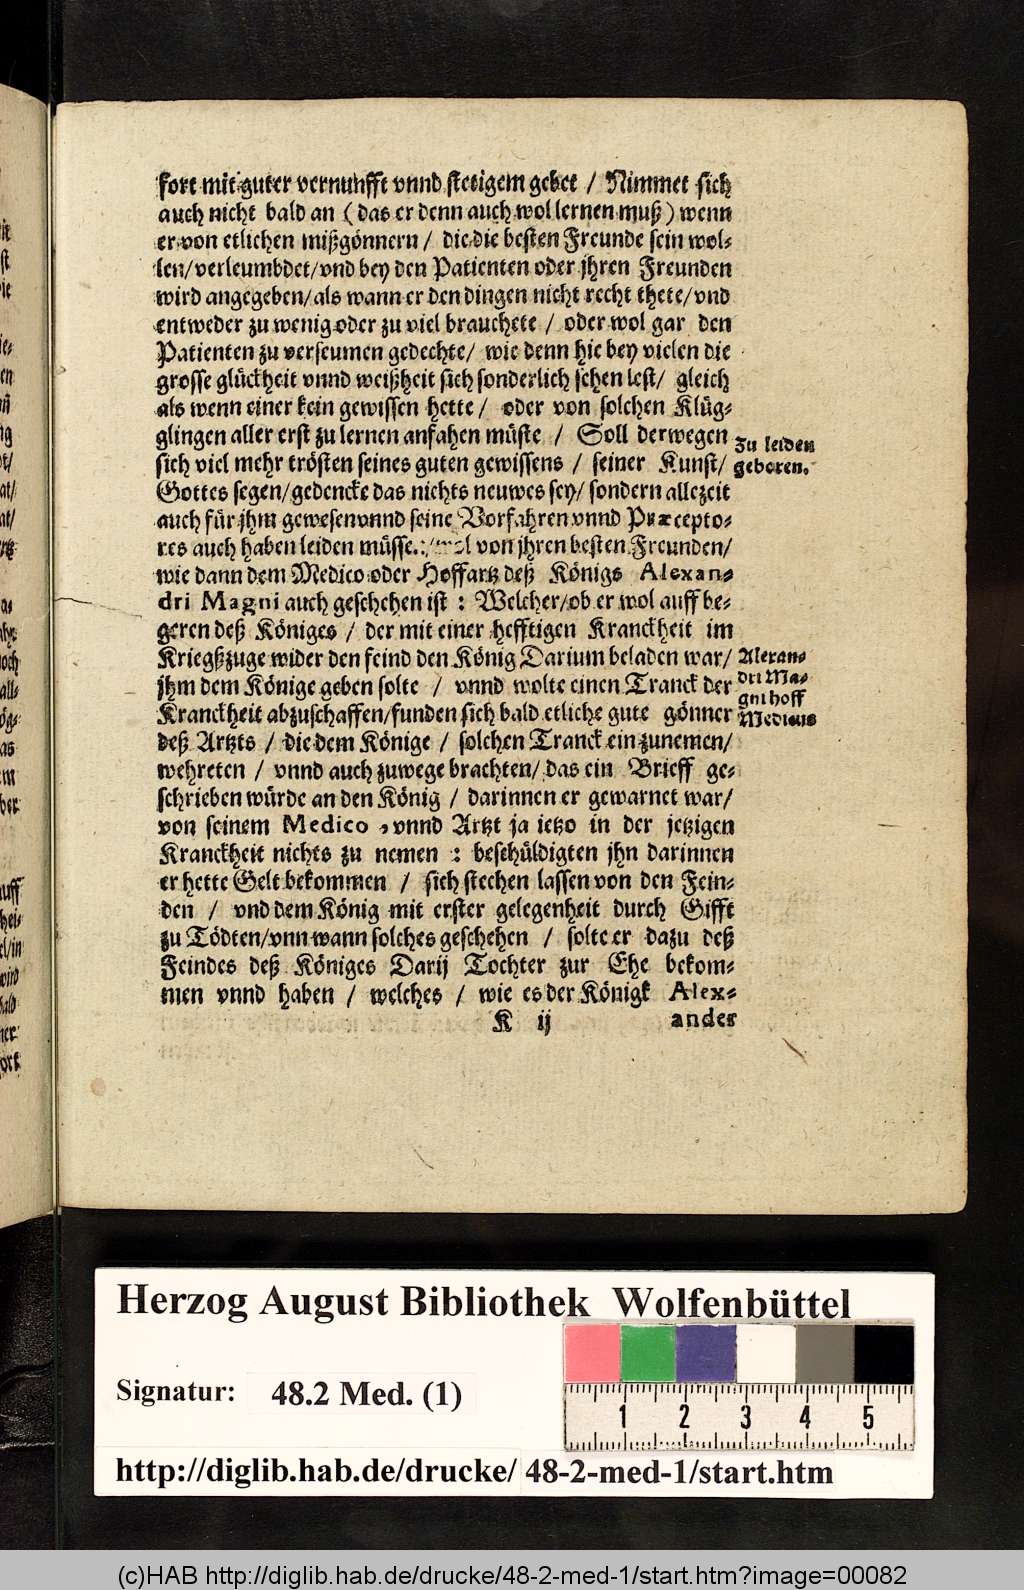 fort mit guter vernunfft vnnd stetigem gebet / Nimmet sich
auch nicht bald an (das er denn auch wol lernen muß) wenn
er von etlichen mißgönnern / die die besten Freunde sein wol-
len/verleumbdet/vnd bey den Patienten oder jhren Freunden
wird angegeben/als wann er den dingen nicht recht thete/vnd
entweder zu wenig oder zu viel brauchete / oder wol gar den
Patienten zu verseumen gedechte/ wie denn hie bey vielen die
grosse glückheit vnnd weißheit sich sonderlich sehen lest/ gleich
als wenn einer kein gewissen hette / oder von solchen Klüg-
glingen aller erst zu lernen anfahen müste / Soll derwegen
sich viel mehr trösten seines guten gewissens / seiner Kunst/
Gottes segen/gedencke das nichts neuwes sey/ sondern allezeit
auch für jhm gewesen vnnd seine Vorfahren vnnd Præcepto-
res auch haben leiden müssen/ wol von jhren besten Freunden/
wie dann dem Medico oder Hoffartz deß Königs Alexan-
dri Magni auch geschehen ist : Welcher/ob er wol auff be-
geren deß Königes / der mit einer hefftigen Kranckheit im
Kriegßzuge wider den feind den König Darium beladen war/
jhm dem Könige geben solte / vnnd wolte einen Tranck der
Kranckheit abzuschaffen/funden sich bald etliche gute gönner
deß Artzts / die dem Könige / solchen Tranck ein zunemen/
wehreten / vnnd auch zuwege brachten/ das ein Brieff ge-
schrieben würde an den König / darinnen er gewarnet war/
von seinem Medico , vnnd Artzt ja ietzo in der jetzigen
Kranckheit nichts zu nemen : beschüldigten jhn darinnen
er hette Gelt bekommen / sich stechen lassen von den Fein-
den / vnd dem König mit erster gelegenheit durch Gifft
zu Tödten/vnn wann solches geschehen / solte er dazu deß
Feindes deß Königes Darij Tochter zur Ehe bekom-
men vnnd haben / welches / wie es der Königk Alex-
K ij ander
Zu leiden
geboren.
Alexan-
dri Ma-
gni hoff
Medicus
Herzog August Bibliothek Wolfenbüttel
Signatur: 48.2 Med. (1)
1 2 3 4 5
http://diglib.hab.de/drucke/ 48-2-med-1/start.htm
(c)HAB http://diglib.hab.de/drucke/48-2-med-1/start.htm?image=00082